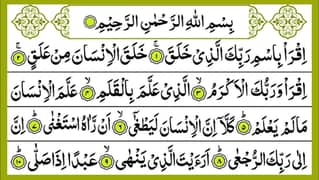 بِسْمِ اللّٰهِ الرَّحْمٰنِ الرَّحِیْمِ
اِقْرَاْ بِاسْمِ رَبِّكَ الَّذِیْ خَلَقَ ۝۱ خَلَقَ الْاِنْسَانَ مِنْ عَلَقٍ ۝۲
اِقْرَاْ وَرَبُّكَ الْاَكْرَمُ ۝۳ الَّذِیْ عَلَّمَ بِالْقَلَمِ ۝۴ عَلَّمَ الْاِنْسَانَ
مَا لَمْ یَعْلَمْ ۝۵ كَلَّاۤ اِنَّ الْاِنْسَانَ لَیَطْغٰۤی ۝۶ اَنْ رَّاٰهُ اسْتَغْنٰی ۝۷ اِنَّ
اِلٰی رَبِّكَ الرُّجْعٰی ۝۸ اَرَءَیْتَ الَّذِیْ یَنْهٰی ۝۹ عَبْدًا اِذَا صَلّٰی ۝۱۰